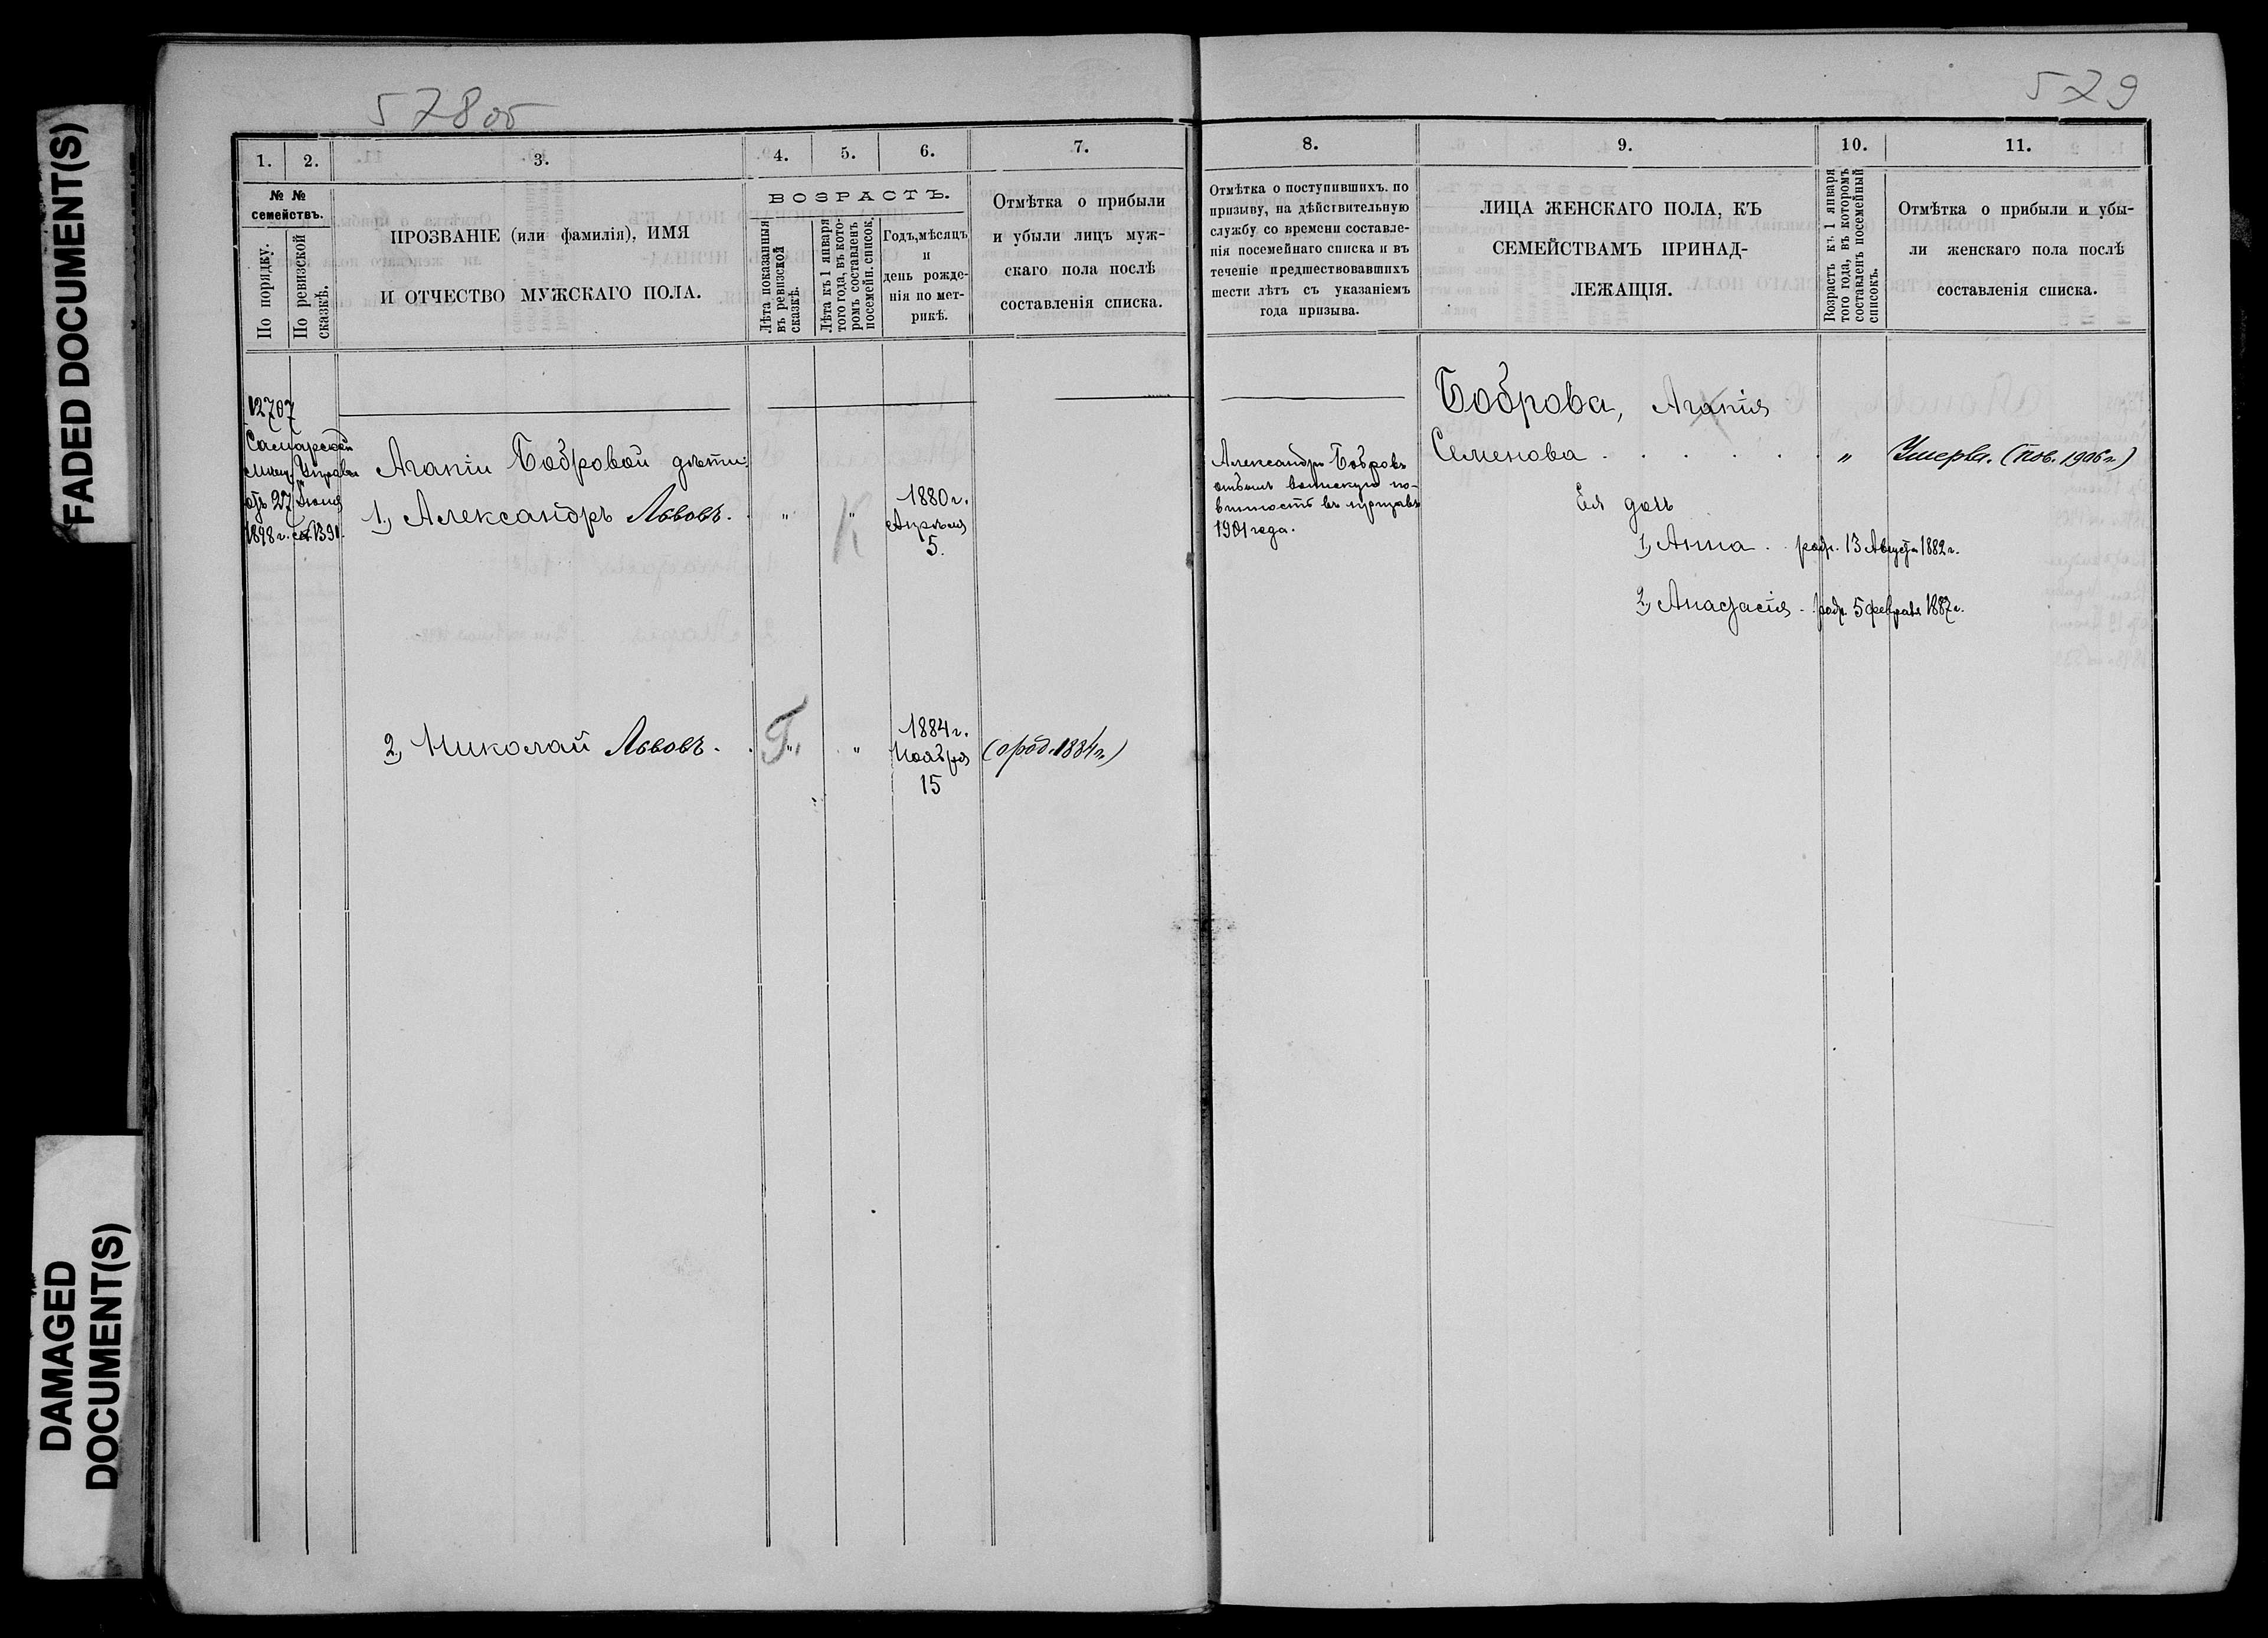 FADED DOCUMENT(S)
DAMAGED
DOCUMENT(S)
578об
1.
2.
3.
4.
5.
6.
7.
№ №
семействъ.
По порядку.
По ревизской
сказкѣ.
ПРОЗВАНІЕ (или фамилія), ИМЯ
И ОТЧЕСТВО МУЖСКАГО ПОЛА.
ВОЗРАСТЪ.
Лѣта показанныя
въ ревизской
сказкѣ.
Лѣта къ 1 января
того года, въ кото-
ромъ составленъ
посемейн. список.
Годъ, мѣсяцъ
и
день рожде-
нія по мет-
рикѣ.
Отмѣтка о прибыли
и убыли лицъ муж-
скаго пола послѣ
составленія списка.
12707
Самарской
мѣщ. Управы
отъ 27 Іюня
1898 г. за № 1391.
Агапіи Бобровой дѣти:
1, Александръ Львовъ. " " 
К
1880 г.
Апрѣля
5.
2, Николай Львовъ. " "
Г.
1884 г.
Ноября
15
(о род. 1884 г.)
529
8.
9.
10.
11.
Отмѣтка о поступившихъ. по
призыву, на дѣйствительную
службу со времени составле-
нія посемейнаго списка и въ
теченіе предшествовавшихъ
шести лѣтъ съ указаніемъ
года призыва.
ЛИЦА ЖЕНСКАГО ПОЛА, КЪ
СЕМЕЙСТВАМЪ ПРИНАД-
ЛЕЖАЩІЯ.
Возрастъ къ 1 января
того года, въ которомъ
составленъ посемейный
списокъ.
Отмѣтка о прибыли и убы-
ли женскаго пола послѣ
составленія списка.
Александръ Бобровъ
отбылъ воинскую по-
винность въ призывъ
1901 года.
Боброва, Агапія
Семенова . . . . . " Умерла. (пов. 1906 г.)
Ея дочь
1, Анна . . род. 13 Августа 1882 г.
2, Анастасія . род. 5 февраля 1887 г.